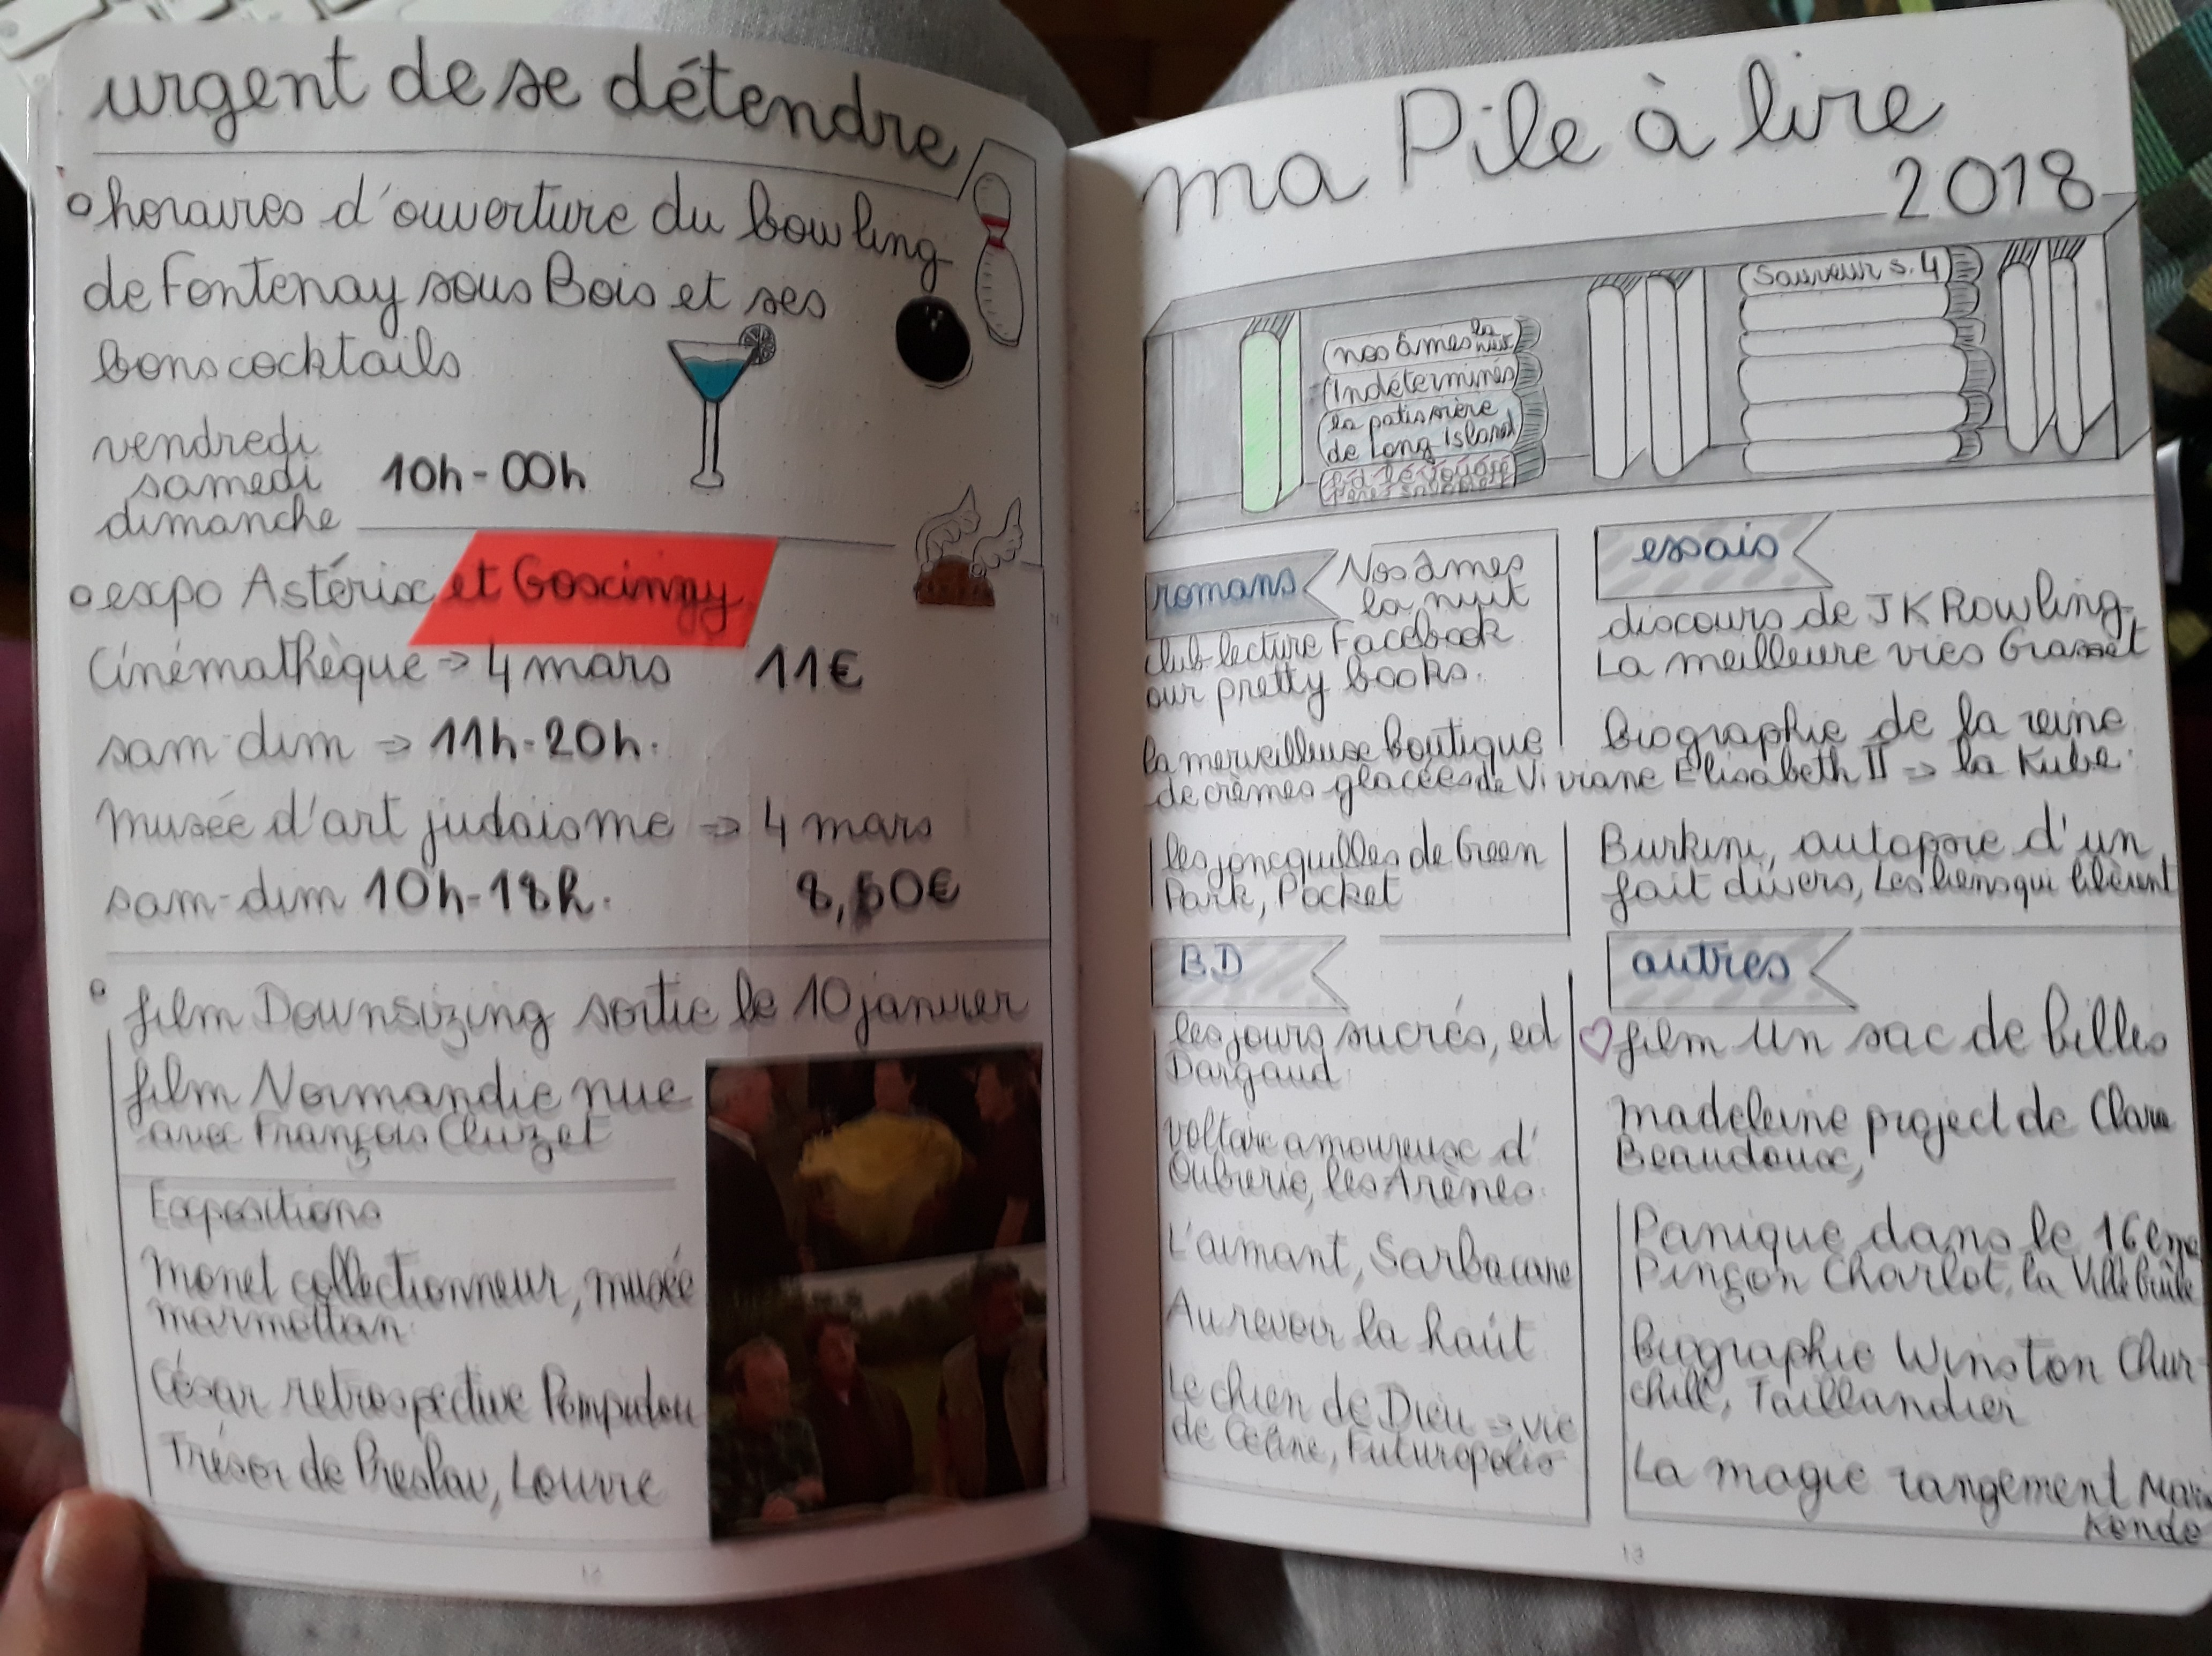 urgent de se détendre
horaires d'ouverture du bowling
de Fontenay sous Bois et ses
bons cocktails
vendredi
samedi
dimanche
10h-00h
expo Astérix et Goscinny
Cinémathèque => 4 mars 11€
sam-dim => 11h-20h.
Musée d'art judaïsme => 4 mars
sam-dim 10h-18h. 8,50€
film Downsizing sortie le 10 janvier
film Normandie nue
avec François Cluzet
Expositions
Monet collectionneur, musée
marmottan
César retrospective Pompidou
Trésor de Preslav, Louvre
12
ma Pile à lire
2018
nos âmes la nuit
Indéterminés
la patissière
de Long Island
Sauveur s. 4
romans
Nos âmes
la nuit
club lecture Facebook
our pretty books.
la merveilleuse boutique
de crèmes glacées de Viviane
les joncquilles de Green
Park, Pocket
essais
discours de JK Rowling
La meilleure vies Grasset
Biographie de la reine
Elisabeth II => la Kube.
Burkini, autopsie d'un
fait divers, Les liens qui libèrent
BD
les jours sucrés, ed
Dargaud
Voltaire amoureux d'
Oubrerie, les Arènes.
L'aimant, Sarbacane
Au revoir la haut
Le chien de Dieu => vie
de Céline, Futuropolis
autres
film Un sac de billes
Madeleine project de Clara
Beaudoux,
Panique dans le 16ème
Pinçon Charlot, la Ville brûle
Biographie Winston Chur-
chill, Taillandier
La magie rangement Marie
Kondo
13